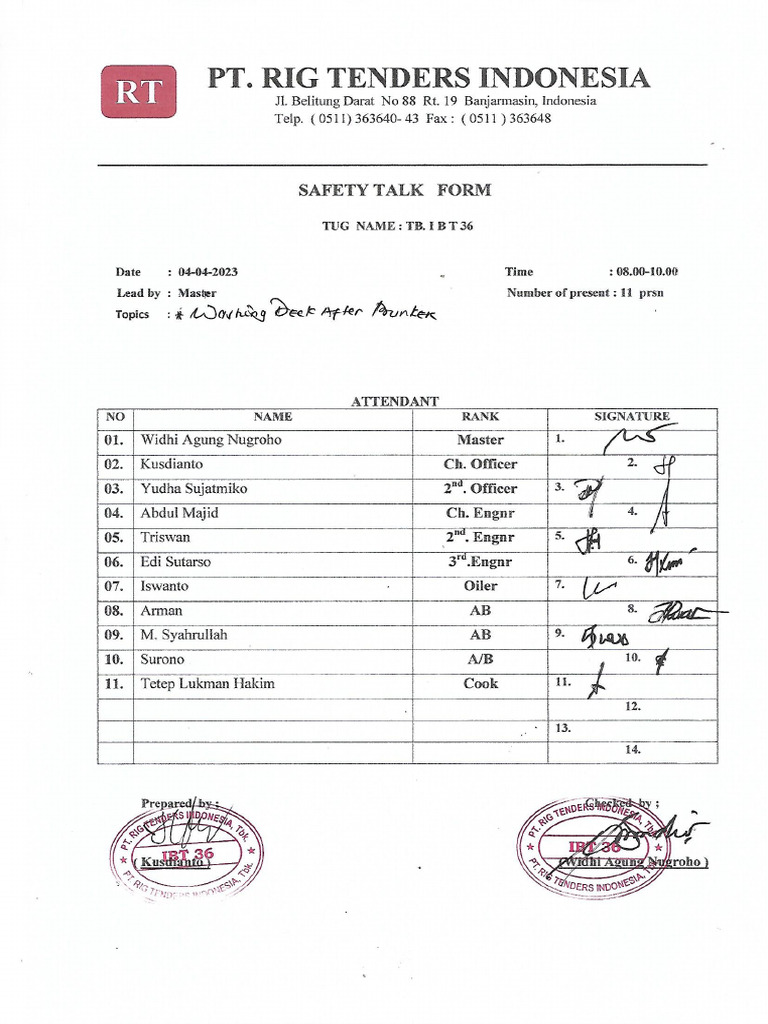 RT
PT. RIG TENDERS INDONESIA
Jl. Belitung Darat No 88 Rt. 19 Banjarmasin, Indonesia
Telp. ( 0511) 363640- 43 Fax : ( 0511 ) 363648
SAFETY TALK FORM
TUG NAME : TB. I B T 36
Date : 04-04-2023 Time : 08.00-10.00
Lead by : Master Number of present : 11 prsn
Topics : * Washing Deck After Bunker
ATTENDANT
NO NAME RANK SIGNATURE
01. Widhi Agung Nugroho Master 1.
02. Kusdianto Ch. Officer 2.
03. Yudha Sujatmiko 2nd. Officer 3.
04. Abdul Majid Ch. Engnr 4.
05. Triswan 2nd. Engnr 5.
06. Edi Sutarso 3rd.Engnr 6.
07. Iswanto Oiler 7.
08. Arman AB 8.
09. M. Syahrullah AB 9.
10. Surono A/B 10.
11. Tetep Lukman Hakim Cook 11.
12.
13.
14.
Prepared by ; Checked by ;
PT. RIG TENDERS INDONESIA, Tbk. PT. RIG TENDERS INDONESIA, Tbk.
IBT 36 IBT 36
( Kusdianto ) (Widhi Agung Nugroho )
PT. RIG TENDERS INDONESIA, Tbk. PT. RIG TENDERS INDONESIA, Tbk.